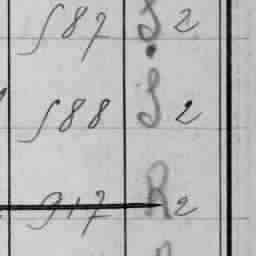 587 S 2
588 S 2
R 2